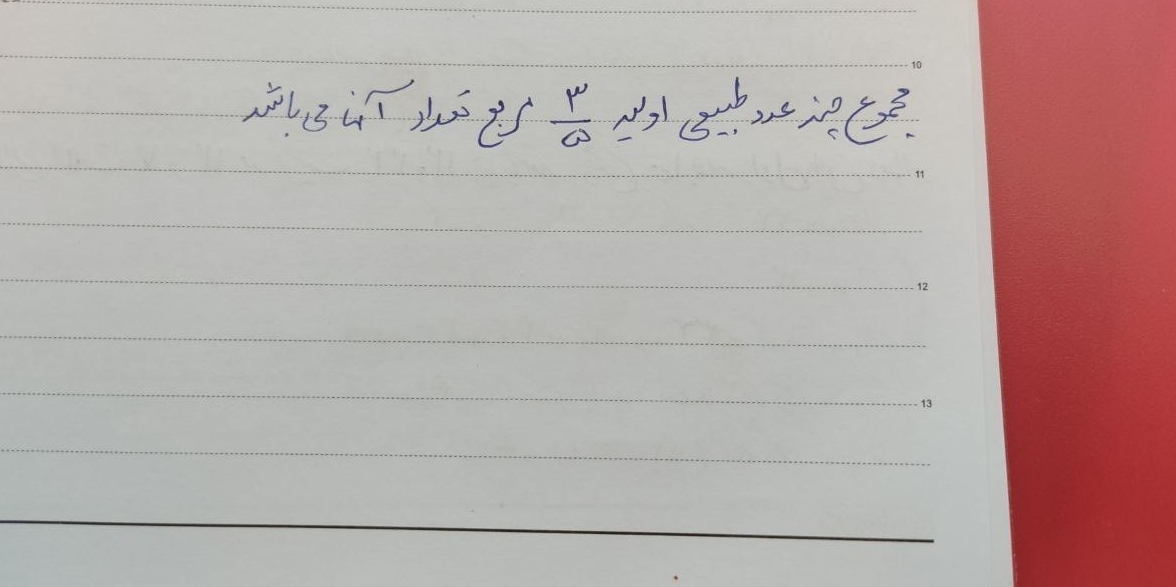 مجموع چند عدد طبیعی اولیه ۳/۵ مربع تعداد آنها می باشد
10
11
12
13